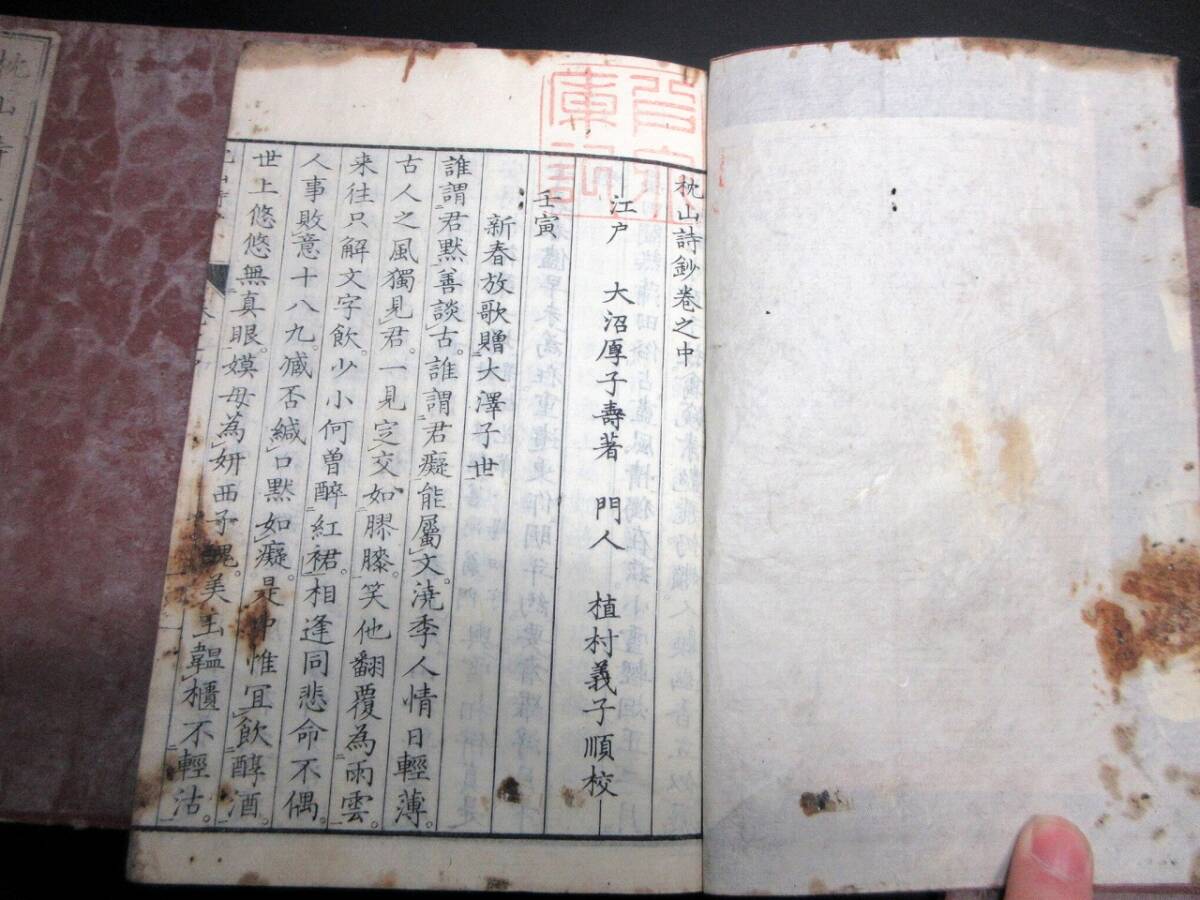 枕山詩鈔卷之中
江戸 大沼厚子壽著 門人 植村義子順校
壬寅
新春放歌贈大澤子世
誰謂君黙善談古。誰謂君癡能屬文。澆季人情日輕薄。
古人之風獨見君。一見定交如膠膝。笑他翻覆為雨雲。
来往只解文字飲。少小何曾醉紅裙。相逢同悲命不偶。
人事敗意十八九。臧否緘口黙如癡。是中惟宜飲醇酒。
世上悠悠無真眼。嫫母為妍西子媿。美玉韞櫃不輕沽。
枕山詩